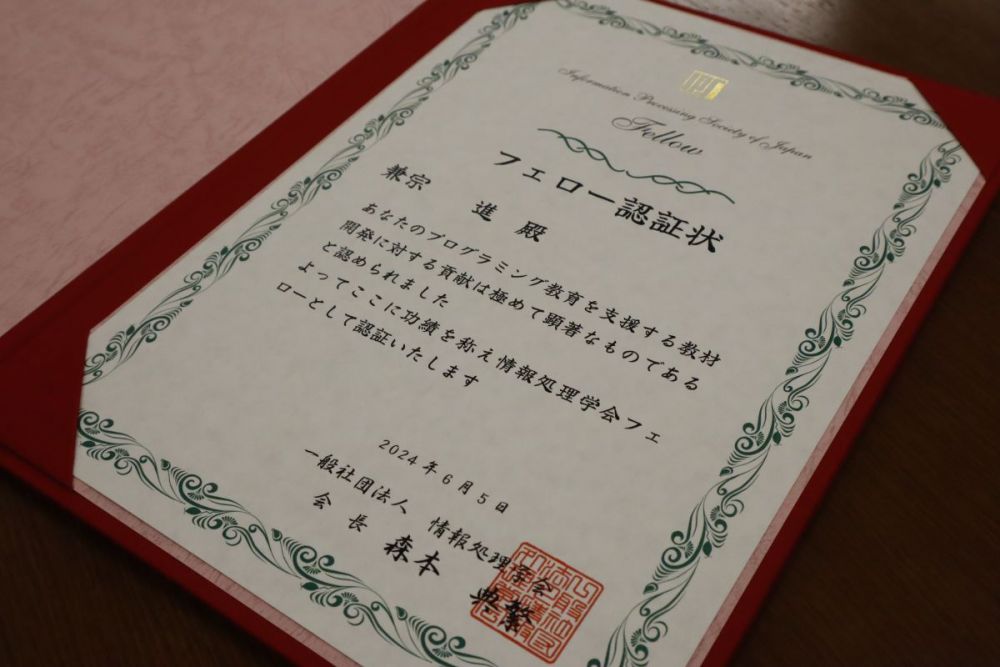 Information Processing Society of Japan
Fellow
フェロー認証状
兼宗 進 殿
あなたのプログラミング教育を支援する教材
開発に対する貢献は極めて顕著なものである
と認められました
よってここに功績を称え情報処理学会フェ
ローとして認証いたします
2024年6月5日
一般社団法人 情報処理学会
会長 森本 典繁